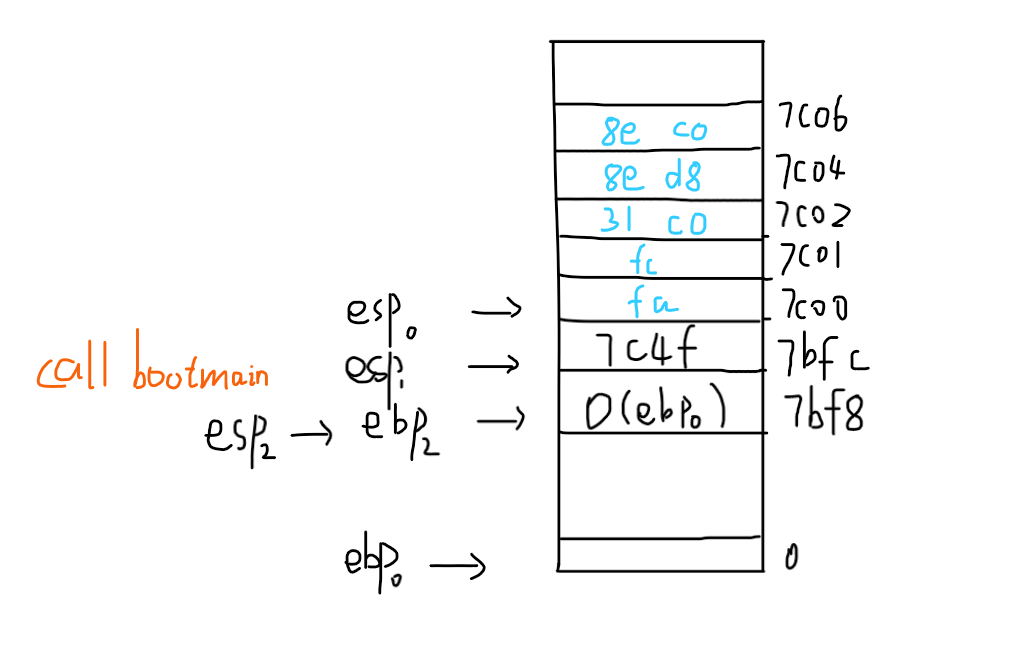 7c06
8e c0
7c04
8e d8
7c02
31 c0
7c01
fc
esp0 → fa 7c00
call bootmain esp1 → 7c4f 7bfc
esp2 → ebp2 → 0(ebp0) 7bf8
ebp0 → 0